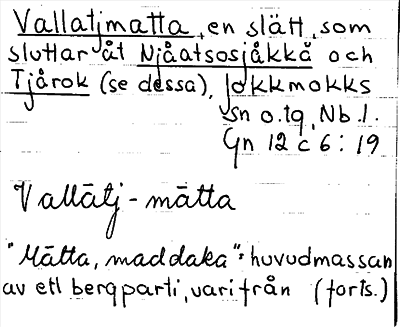 Vallatjmatta, en slätt, som
sluttar åt Njåatsosjåkkå och
Tjårok (se dessa), Jokkmokks
sn o.tg, Nb.l.
Gn 12 c 6:19
Vallātj - mātta
"Mātta, maddaka" = huvudmassan
av ett bergparti, varifrån (forts.)